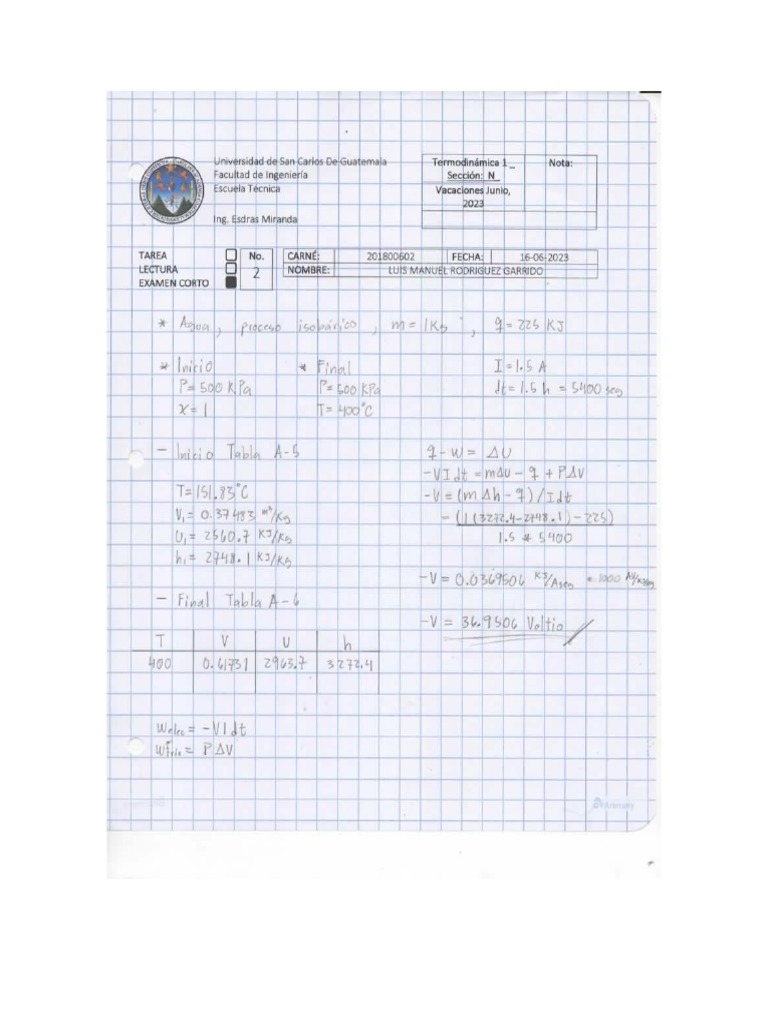 Universidad de San Carlos De Guatemala
Facultad de Ingeniería
Escuela Técnica
Ing. Esdras Miranda
Termodinámica 1 _
Sección: N_
Nota:
Vacaciones Junio,
2023
TAREA
LECTURA
EXAMEN CORTO
No.
2
CARNÉ: 201800602 FECHA: 16-06-2023
NOMBRE: LUIS MANUEL RODRIGUEZ GARRIDO
* Agua, proceso isobárico, m = 1Kg, q = 225 KJ
* Inicio
P = 500 KPa
x = 1
* Final
P = 500 KPa
T = 400°C
I = 1.5 A
dt = 1.5 h = 5400 seg
- Inicio Tabla A-5
T = 151.83°C
V₁ = 0.37483 m³/Kg
U₁ = 2560.7 KJ/Kg
h₁ = 2748.1 KJ/Kg
- Final Tabla A-6
T V U h
400 0.61731 2963.7 3272.4
Welec = -VIdt
= PΔV
q - W = ΔU
-VIdt = mΔu - q + PΔV
-V = (mΔh - q)/Idt
-(1(3272.4-2748.1)-225)
1.5 * 5400
-V = 0.0369506 KJ/Aseg = 1000
-V = 36.9506 Voltio